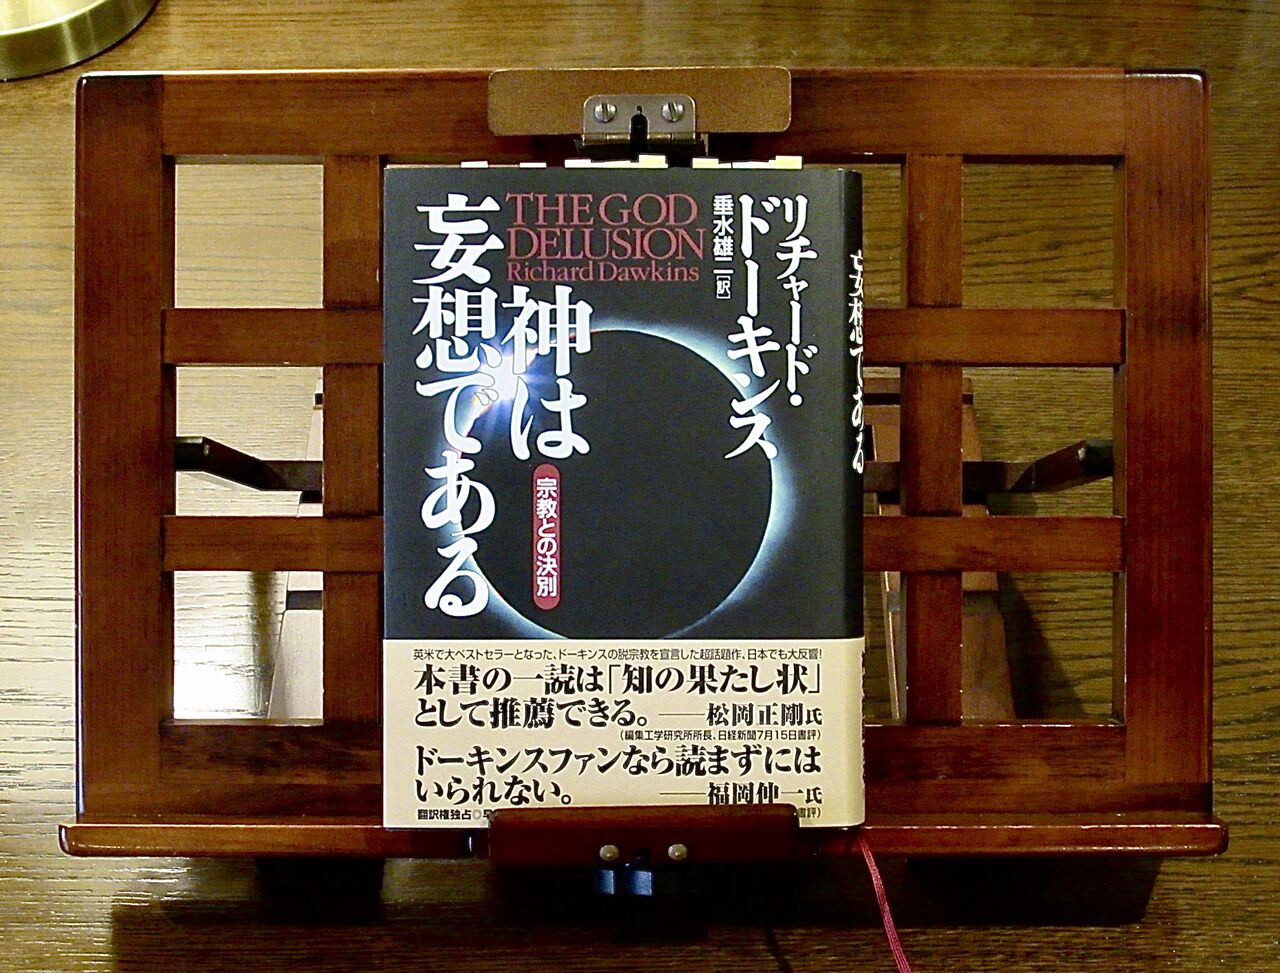 リチャード・
ドーキンス
垂水雄二[訳]
THE GOD
DELUSION
Richard Dawkins
神は
妄想である
宗教との決別
妄想である
英米で大ベストセラーとなった、ドーキンスの脱宗教を宣言した超話題作、日本でも大反響!
本書の一読は「知の果たし状」
として推薦できる。——松岡正剛氏
(編集工学研究所所長、日経新聞7月15日書評)
ドーキンスファンなら読まずには
いられない。——福岡伸一氏
書評)
翻訳権独占◎早